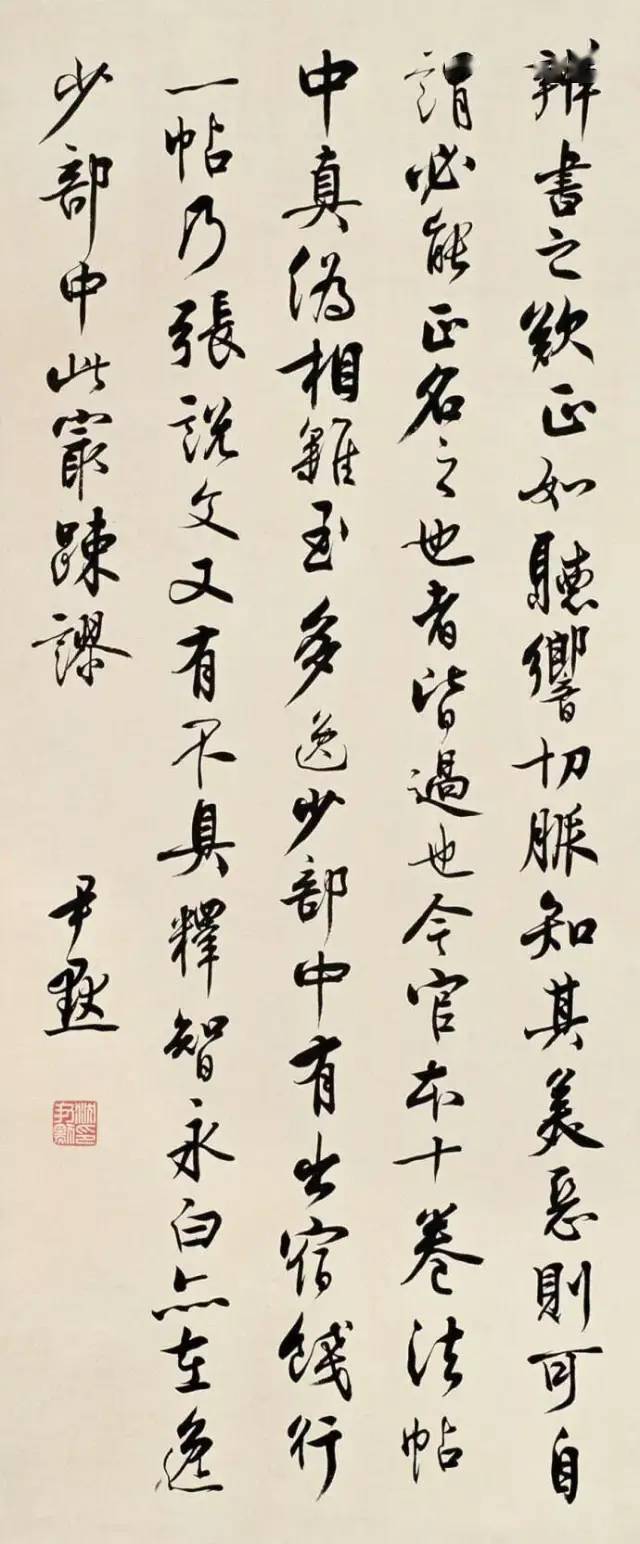 辨書之欵正如聽響切脈知其美惡則可自
謂必能正名之也者皆過也今官本十卷法帖
中真偽相雜至多逸少部中有出宿餞行
一帖乃張說文又有不具釋智永白亦在逸
少部中此最踈謬
尹默
沈尹默印